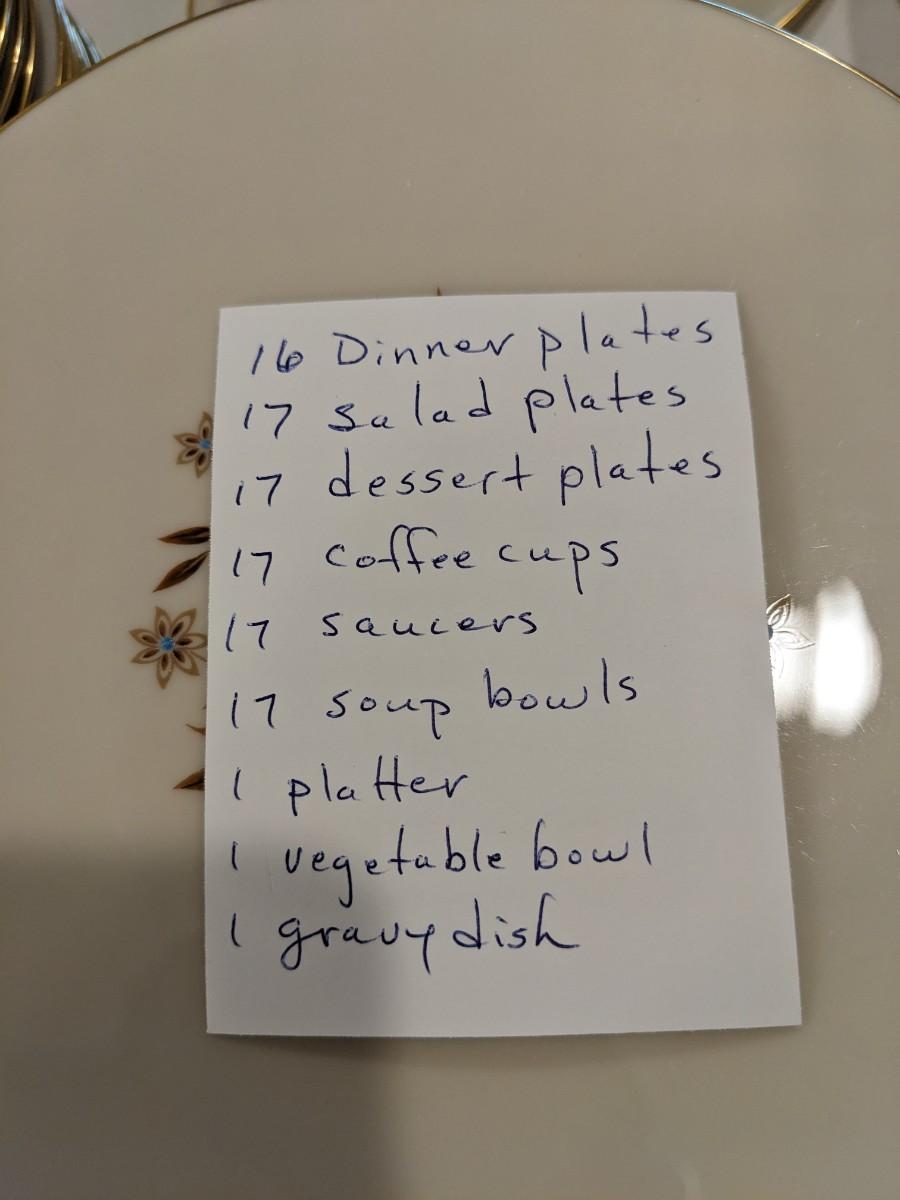 16 Dinner plates
17 salad plates
17 dessert plates
17 coffee cups
17 saucers
17 soup bowls
1 platter
1 vegetable bowl
1 gravy dish